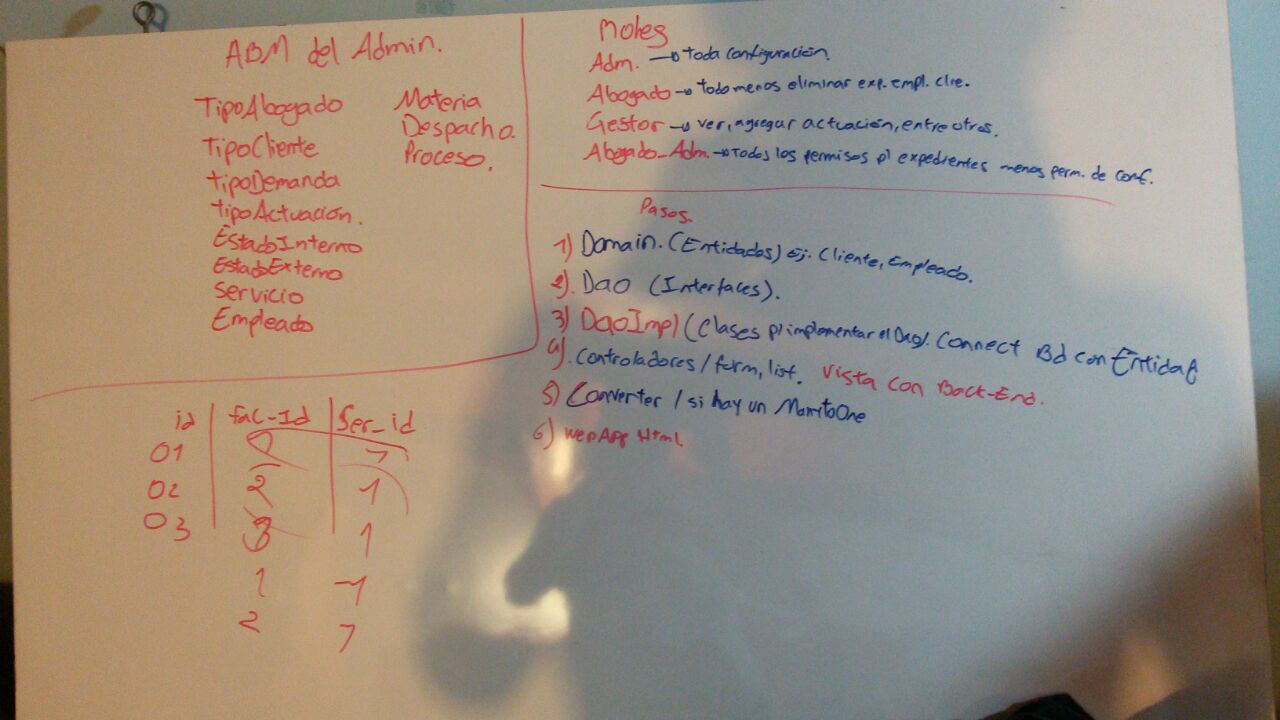 ABM del Admin.
TipoAbogado
TipoCliente
TipoDemanda
TipoActuación.
EstadoInterno
EstadoExterno
Servicio
Empleado
Materia
Despacho.
Proceso.
Roles
Adm. → toda configuración.
Abogado → todo menos eliminar exp. empl. clie.
Gestor → ver, agregar actuación, entre otros.
Abogado_Adm. → Todos los permisos p/ expedientes menos perm. de conf.
Pasos.
1) Domain. (Entidades) Ej. Cliente, Empleado.
2). Dao (Interfaces).
3) DaoImpl (Clases p/ implementar el Dao). Connect Bd con Entidad
4). Controladores / form, list. Vista con Back-End.
5) Converter / si hay un ManytoOne
6) WebApp Html.
id | fac_Id | Ser_id
01
02 2 1
03 3 1
1 1
2